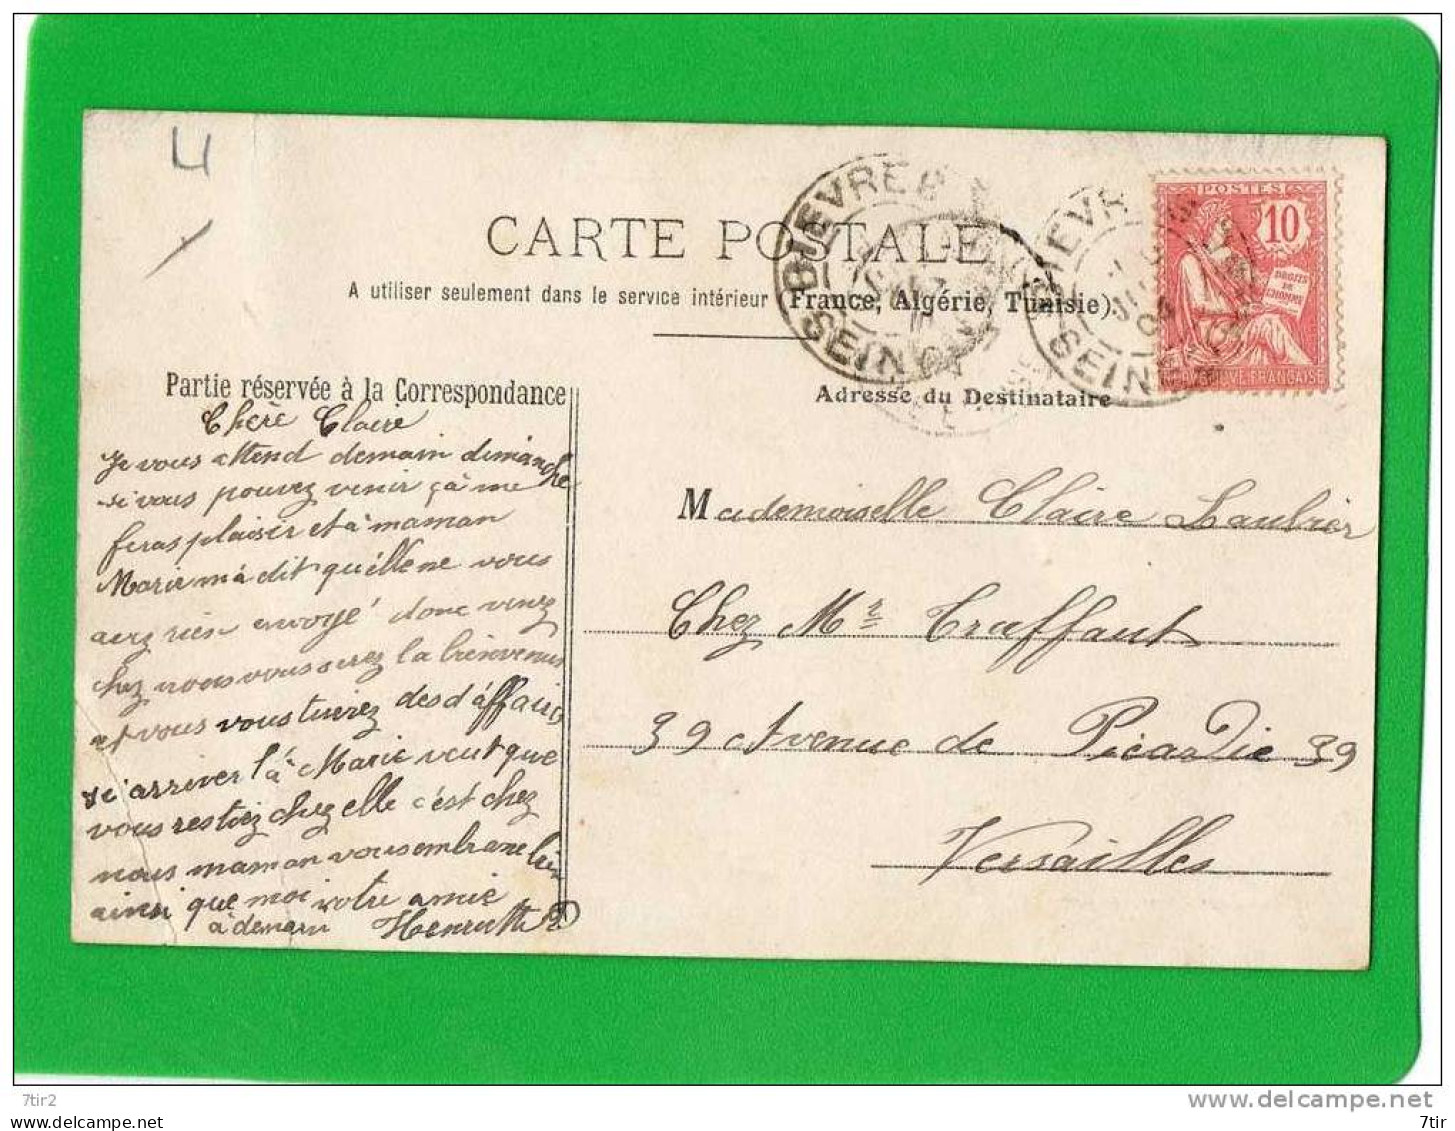 4
CARTE POSTALE
A utiliser seulement dans le service intérieur (France, Algérie, Tunisie).
BIEVRES
SEINE
BIEVRES
SEINE
POSTES
10
DROITS
DE
L'HOMME
RÉPUBLIQUE FRANÇAISE
Partie réservée à la Correspondance
Adresse du Destinataire
Chère Claire
Je vous attend demain dimanche
si vous pouvez venir çà me
feras plaisir et à maman
Marie m'a dit qu'elle ne vous
avez rien envoyé donc venez
chez nous vous serez la bienvenus
et vous vous tirerez des d'affaires
arriver là Marie veut que
vous restiez chez elle c'est chez
nous maman vous embrasse bien
ainsi que moi votre amie
à demain Henriette
Mademoiselle Claire Laubier
Chez Mr Traffaut
39 Avenue de Picardie 39
Versailles
7tir2
www.delcampe.net
7tir2 7tir